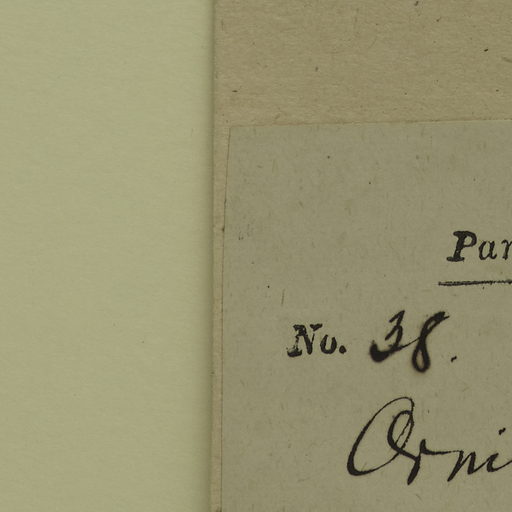 Par
No. 38.
Orni